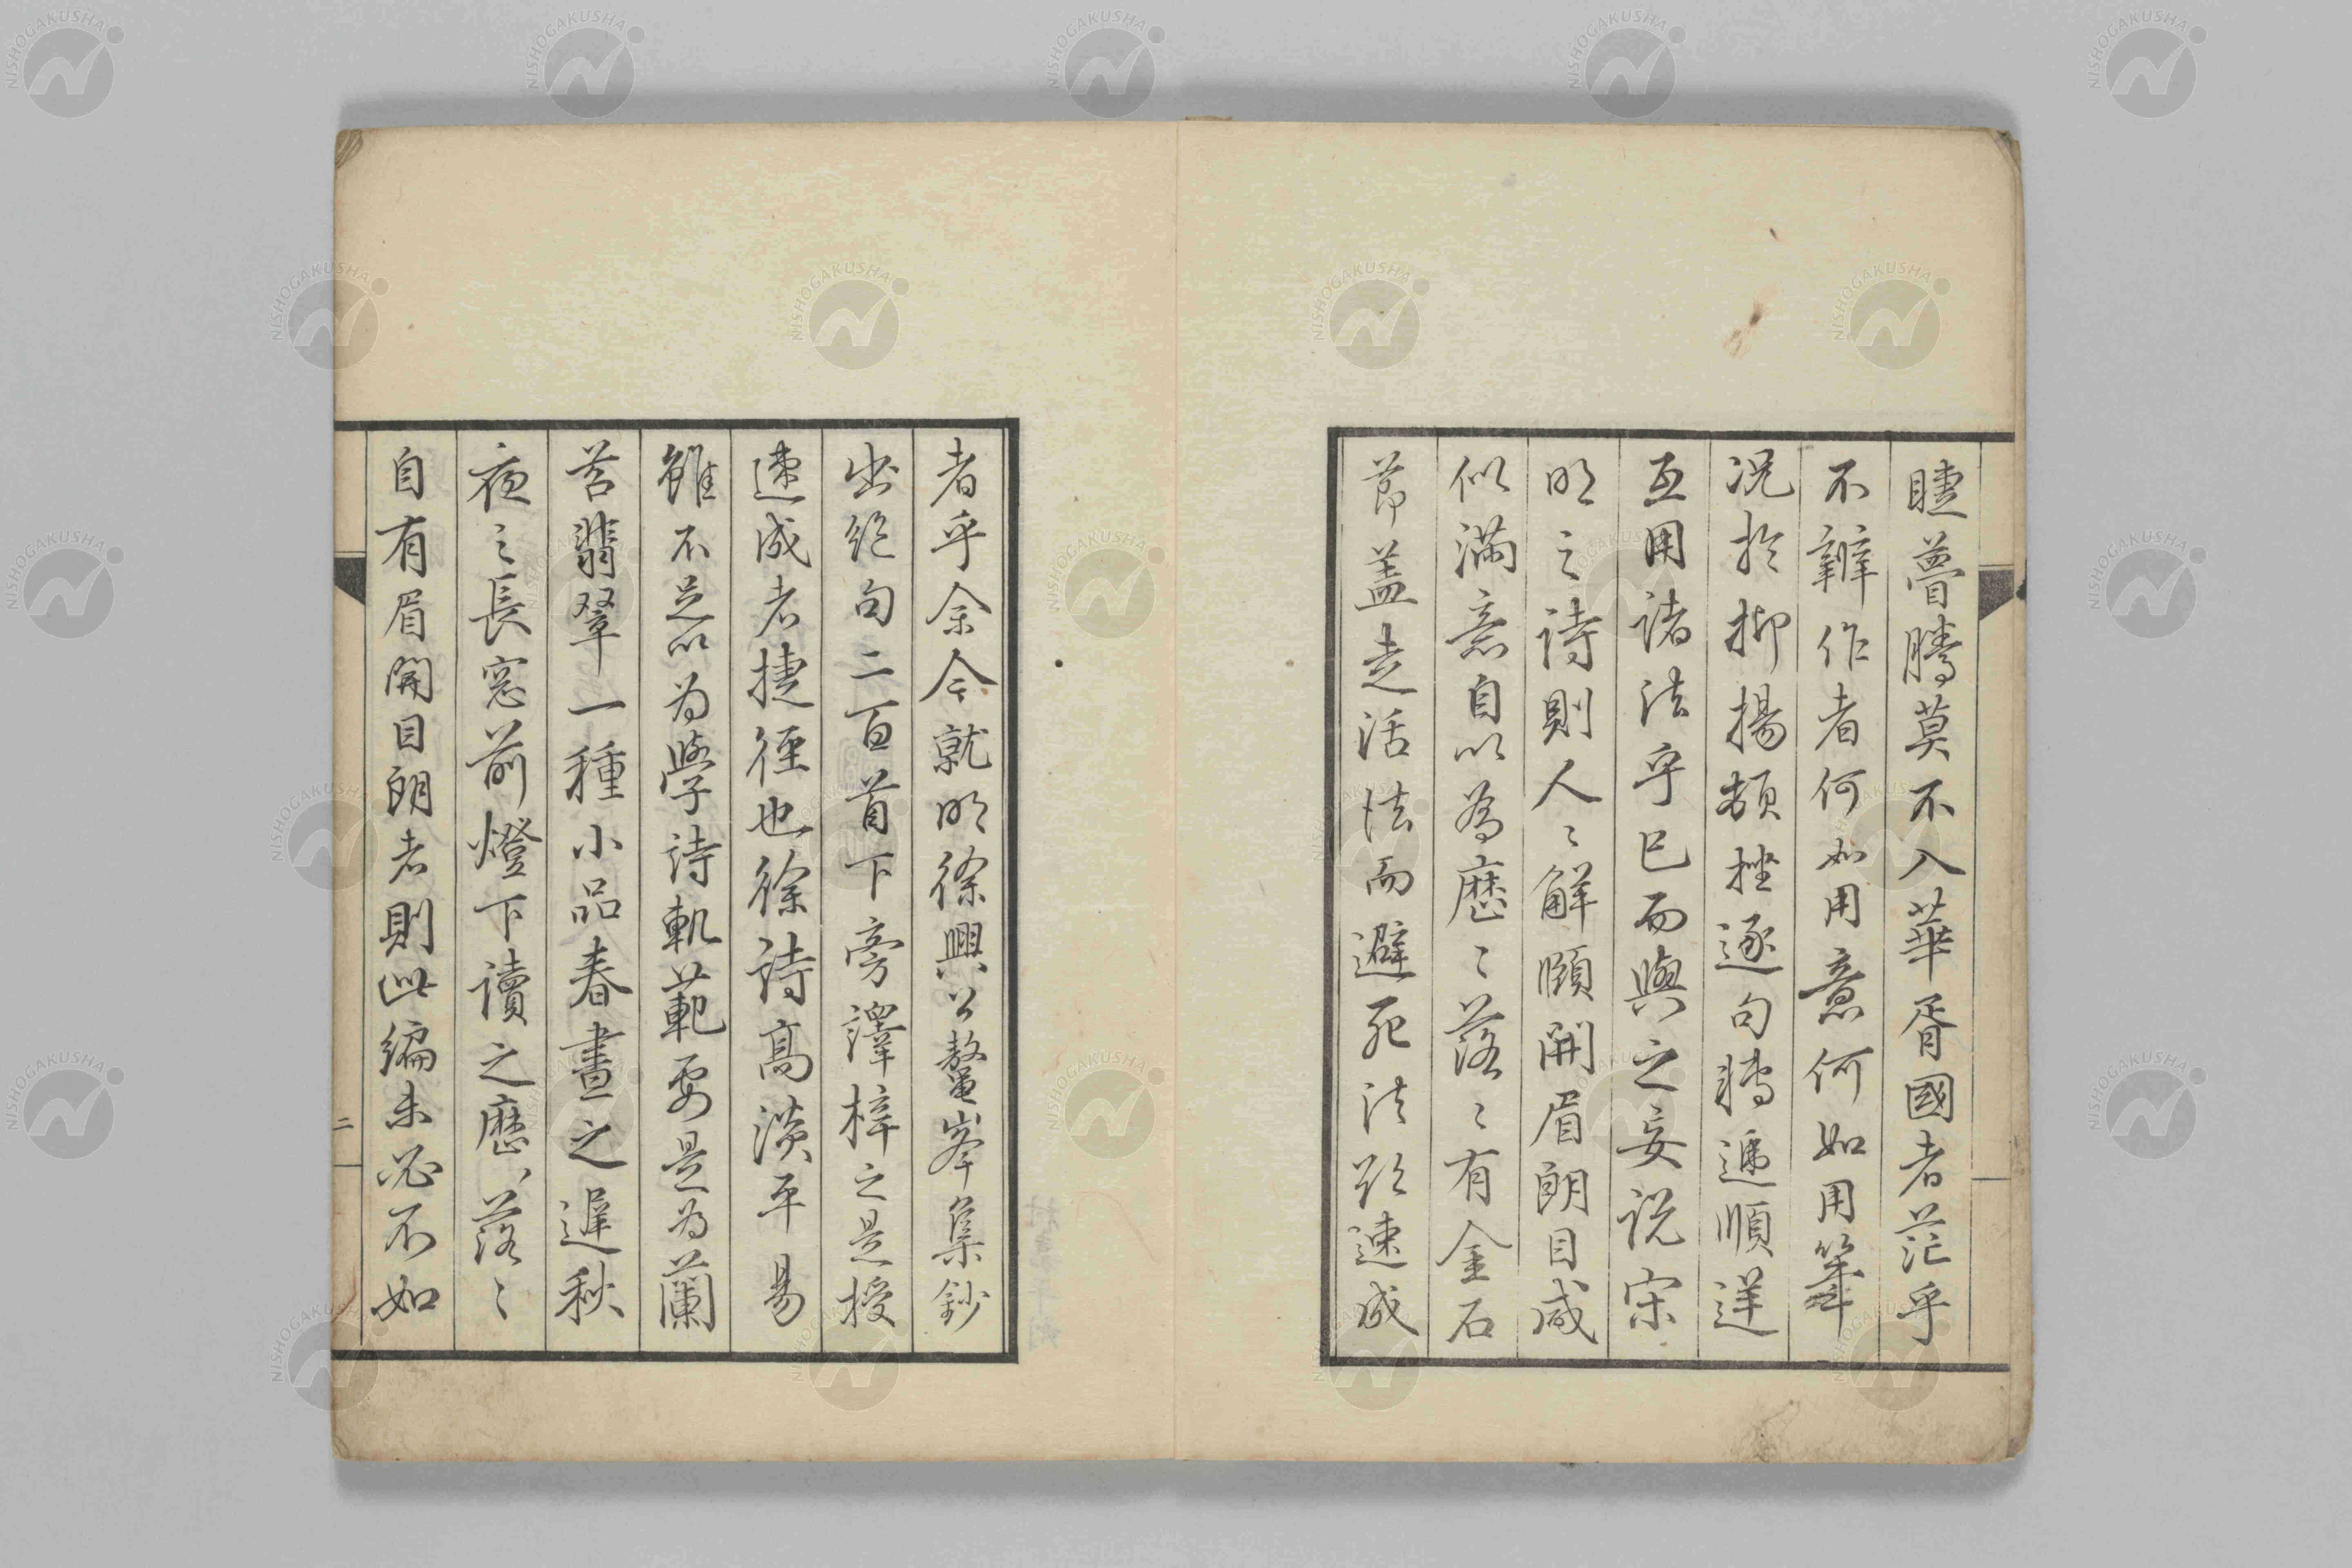 瞳瞢騰莫不入華胥國者茫乎
不辧作者何如用意何如用筆
况於抑揚頓挫逐句轉遞順逆
互用諸法乎已而與之妄説宋
明之詩則人〻解頤開眉朗目咸
似滿意自以為歴〻落〻有金石
節蓋走活法而避死法欤速成
者乎余今就明徐興公鼇峯集鈔
出絶句二百首下旁譯梓之是授
速成者捷徑也徐詩高淡平易
雖不足以為學詩軌範要是為蘭
苕翡翠一種小品春晝之遲秋
夜之長窓前燈下讀之歴〻落〻
自有眉開目朗者則此編未必不如
二
NISHOGAKUSHA